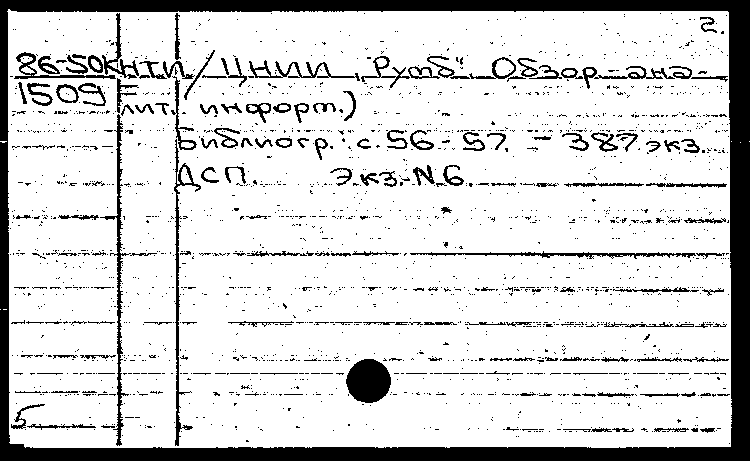 2.
86-50КНТИ / ЦНИИ „Румб". Обзор.-ана-
1509= лит. информ.)
Библиогр.: с. 56-57. - 387 экз.
ДСП. Экз. N6.
5